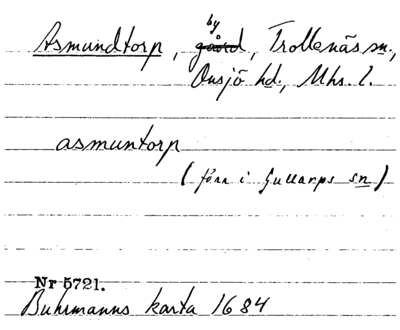 by
Asmundtorp, gård, Trollenäs sn.,
Onsjö hd., Mhs. l.
asmuntorp
(förr i Gullarps sn)
Nr 5721.
Buhrmanns karta 1684